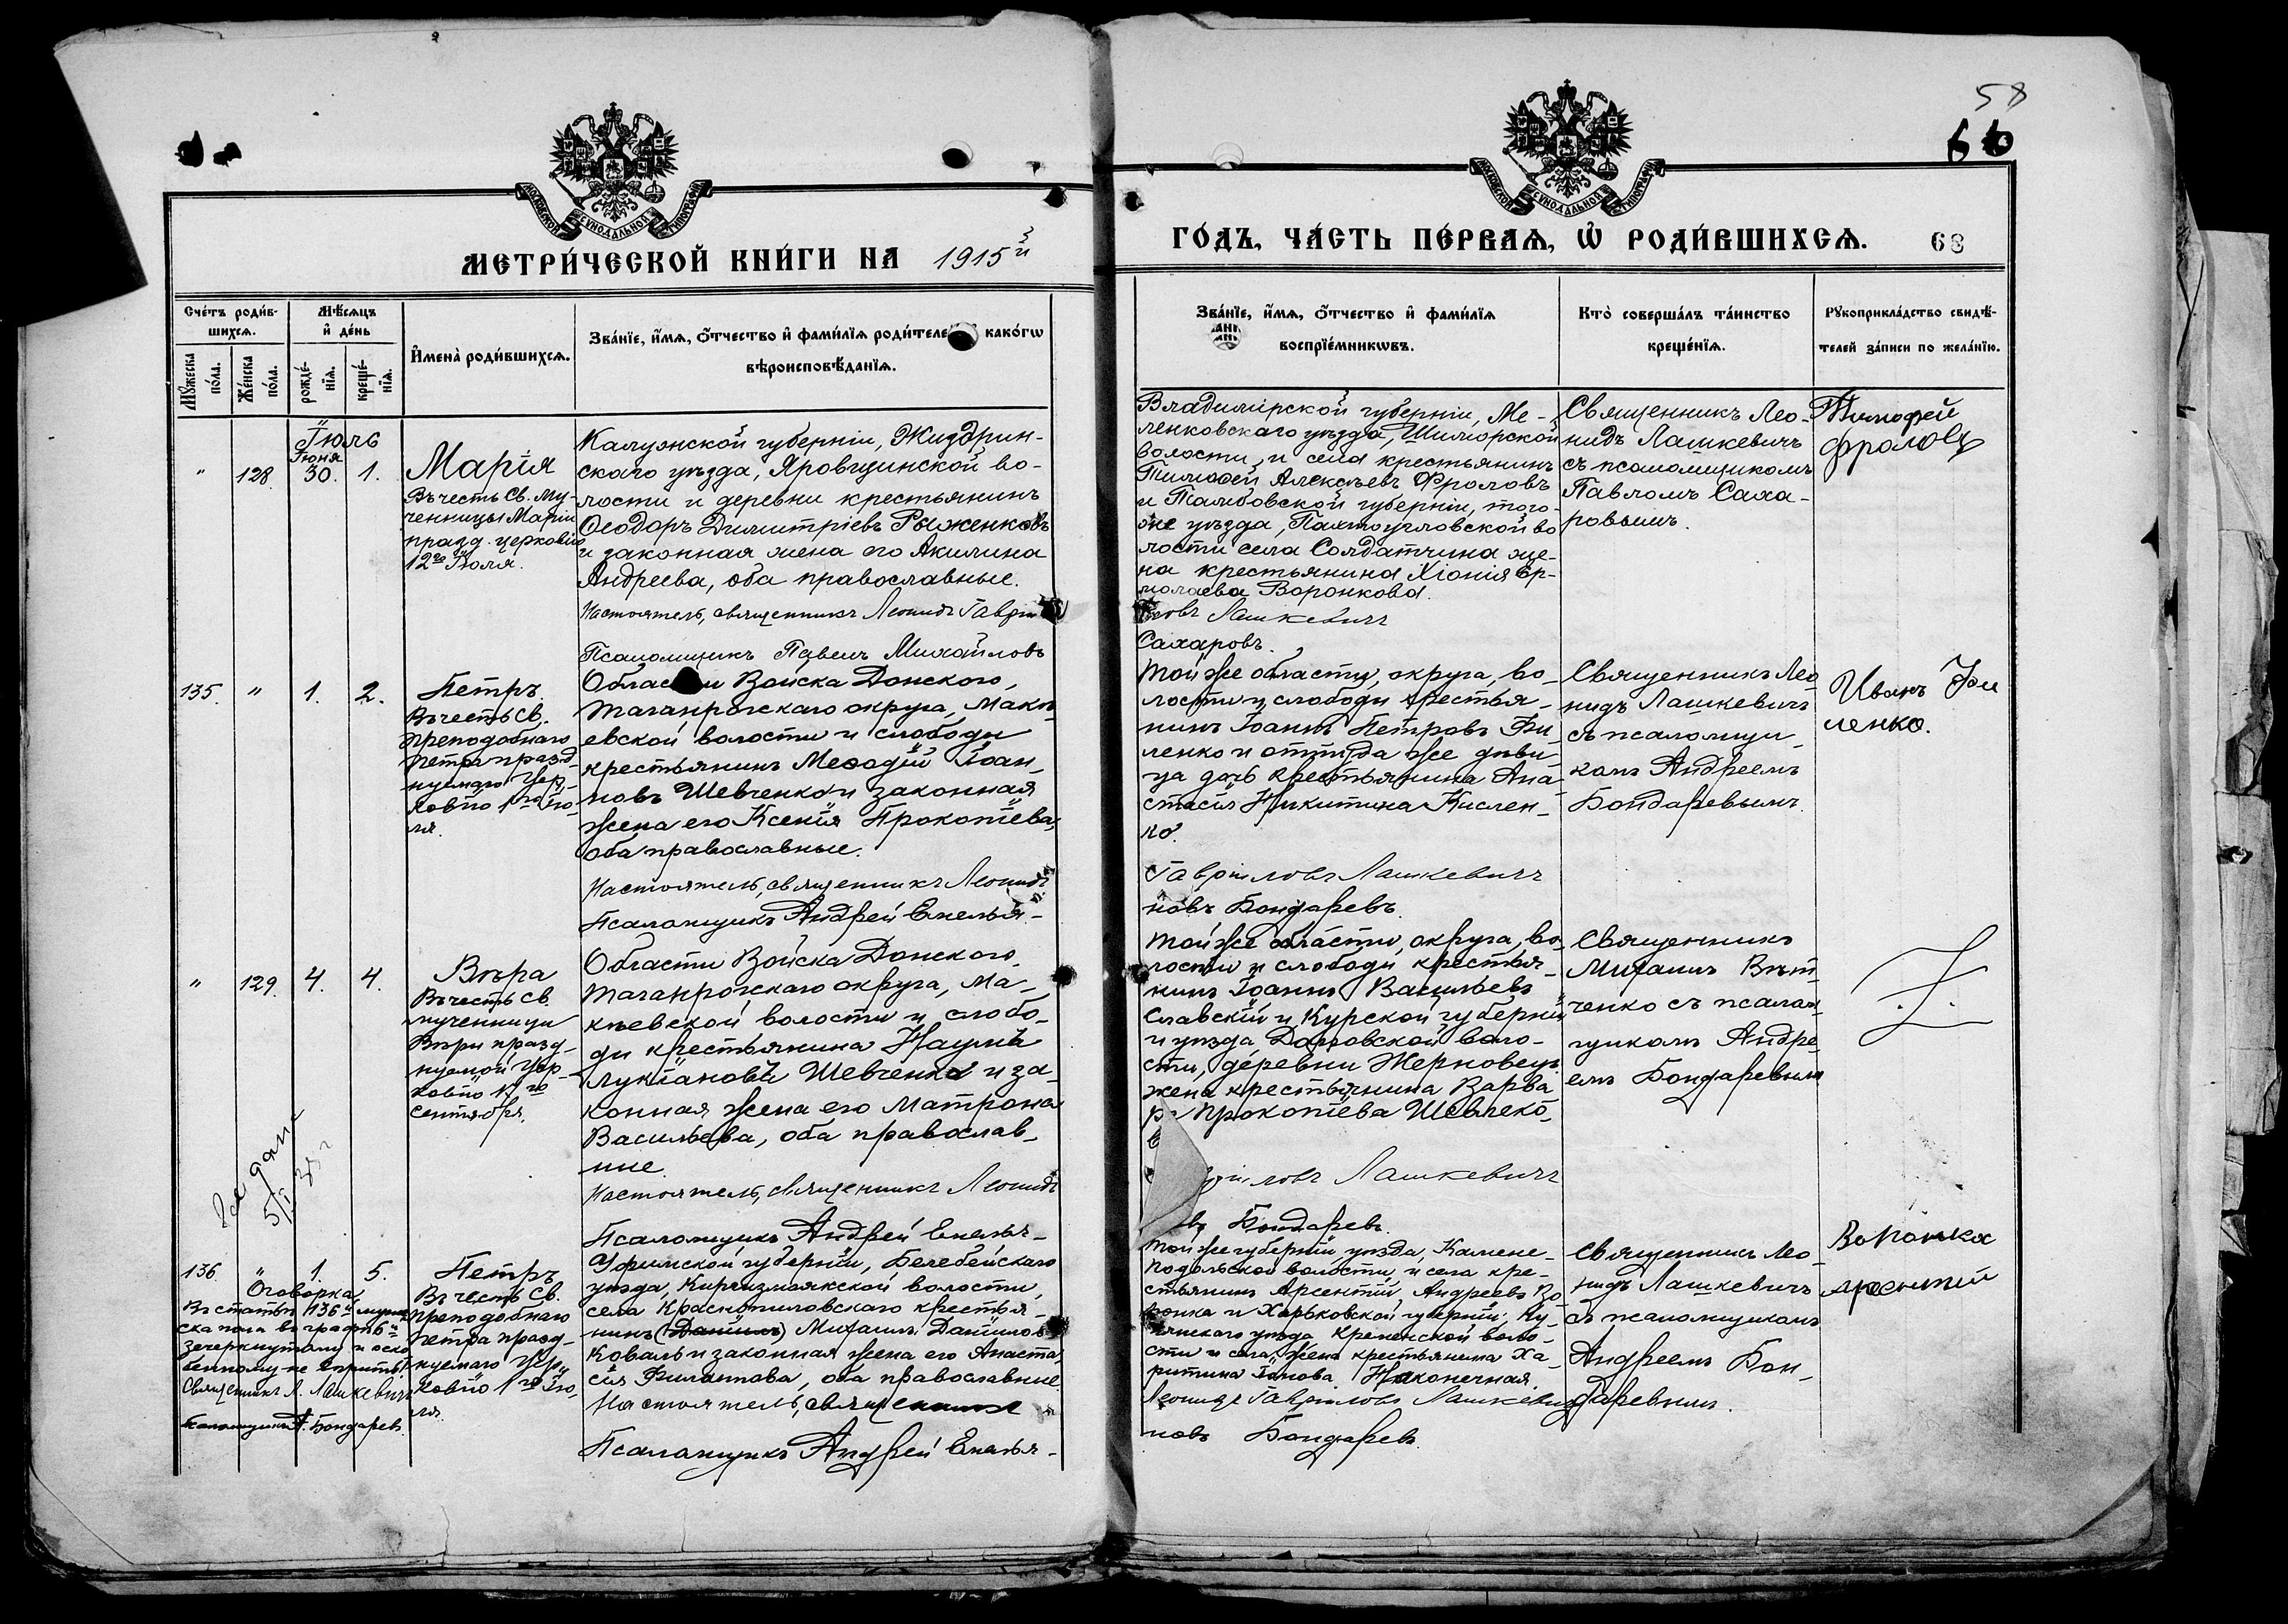 58
66
МОСКОВСКОЙ СУНОДАЛЬНОЙ ТИПОГРАФІИ
МОСКОВСКОЙ СУНОДАЛЬНОЙ ТИПОГРАФІИ
МЕТРИ́ЧЕСКОЙ КНИ́ГИ НА 1915й
ГО́ДЪ, ЧА́СТЬ ПЕ́РВАЯ, Ѡ РОДИ́ВШИХСЯ. 68
Сче́тъ роди́в-
шихся.
Мѣ́сяцъ
и де́нь
Мꙋ́жеска по́ла.
Же́нска по́ла.
рожде́-
нїя.
креще́-
нїя.
Имена̀ роди́вшихся.
Зва́нїе, и́мя, о́тчество и фами́лїя роди́теле како́гѡ
вѣроисповѣ́данїя.
Зва́нїе, и́мя, о́тчество и фами́лїя
воспрїе́мникѡвъ.
Кто̀ соверша́лъ та́инство
креще́нїя.
Рꙋкоприкла́дство свидѣ́-
телей за́писи по жела́нїю.
Іюль
Іюня
" 128. 30. 1.
Марія
Въ честь Св. Му-
ченницы Маріи
празд. церковію
12го Іюля.
Калужской губерніи, Жиздрин-
скаго уѣзда, Яровщинской во-
лости и деревни крестьянинъ
Ѳеодоръ Димитріевъ Рыженковъ
и законная жена его Акилина
Андреева, оба православные.
Настоятель, священникъ Леонидъ Гаврі
Псаломщикъ Павелъ Михайловъ
Владимірской губерніи, Ме-
ленковскаго уѣзда, Шиморской
волости, и села крестьянинъ
Тимоѳей Алексѣевъ Фроловъ
и Тамбовской губерніи, того-
же уѣзда, Пахтоугловской во
лости села Солдатчина же-
на крестьянина Хіонія Ер-
молаева Воронкова.
ловъ Лашкевичъ
Сахаровъ.
Священникъ Лео-
нидъ Лашкевичъ
съ псаломщикомъ
Павломъ Саха-
ровымъ.
Тимофей
фролов
135. " 1. 2.
Петръ.
Въ честь Св.
Преподобнаго
Петра празд-
нуемаго Цер-
ковію 1го Ію-
ля.
Области Войска Донского,
Таганрогскаго округа, Макѣ-
евской волости и слободы
крестьянинъ Меѳодій Іоан-
новъ Шевченко и законная
жена его Ксенія Прокопіева,
оба православные.
Настоятель, священникъ Леонидъ
Псаломщикъ Андрей Емелья-
Той же области, округа, во-
лости и слободы крестья-
нинъ Іоаннъ Петровъ Фи-
ленко и оттуда же дѣви-
ца дочь крестьянина Ана-
стасія Никитина Кислен-
ко.
Гавріиловъ Лашкевичъ
новъ Бондаревъ.
Священникъ Лео
нидъ Лашкевичъ
съ псаломщи-
комъ Андреемъ
Бондаревымъ.
Иванъ Фи
ленко.
" 129. 4. 4.
Вѣра
Въ честь Св.
мученницы
Вѣры празд-
нуемой Цер-
ковію 17го
Сентября.
Области Войска Донского,
Таганрогскаго округа, Ма-
кѣевской волости и слобо-
ды крестьянина Наума
Лукіанова Шевченко и за-
конная жена его Матрона
Васильева, оба православ-
ные.
Настоятель, священникъ Леонидъ
Псаломщикъ Андрей Емелья-
Той же области, округа, во-
лости и слободы крестья-
нинъ Іоаннъ Васильевъ
Славскій и Курской губерніи
и уѣзда Долговской воло-
сти, деревни Жерновецъ
жена крестьянина Варва
ра Прокопіева Шевчеко-
ловъ Лашкевичъ
въ Бондаревъ.
Священникъ
Михаилъ Вѣт-
ченко съ псалом-
щикомъ Андре-
емъ Бондаревымъ
136 " 1. 5.
Оговорка.
Въ статьѣ 136й мужe
ска пола въ графѣ
зачеркнутому и оско
бенному не вѣрить.
Священникъ Л. Лашкевичъ
Псаломщикъ А. Бондаревъ.
Петръ
Въ честь Св.
Преподобнаго
Петра празд-
нуемаго Цер-
ковію 1го Ію-
ля.
Уфимской губерніи, Белебейскаго
уѣзда, Киргизмиякской волости,
села Краснопиловскаго крестья-
нинъ (Даніилъ) Михаилъ Даніиловъ
Коваль и законная жена его Анаста-
сія Филиппова, оба православные.
Настоятель, священникъ
Псаломщикъ Андрей Емелья-
Той же губерніи, уѣзда, Камене-
Подольской волости, и села кре-
стьянинъ Арсентій Андреевъ Во-
ронка и Харьковской губерніи, Ку-
пянскаго уѣзда Кременской воло-
сти и села, жена крестьянина Ха-
ритина Іонова Наконечная.
Леонидъ Гавріиловъ Лашкевичъ
новъ Бондаревъ.
Священникъ Лео-
нидъ Лашкевичъ
съ псаломщикомъ
Андреемъ Бон-
даревымъ.
Воронька